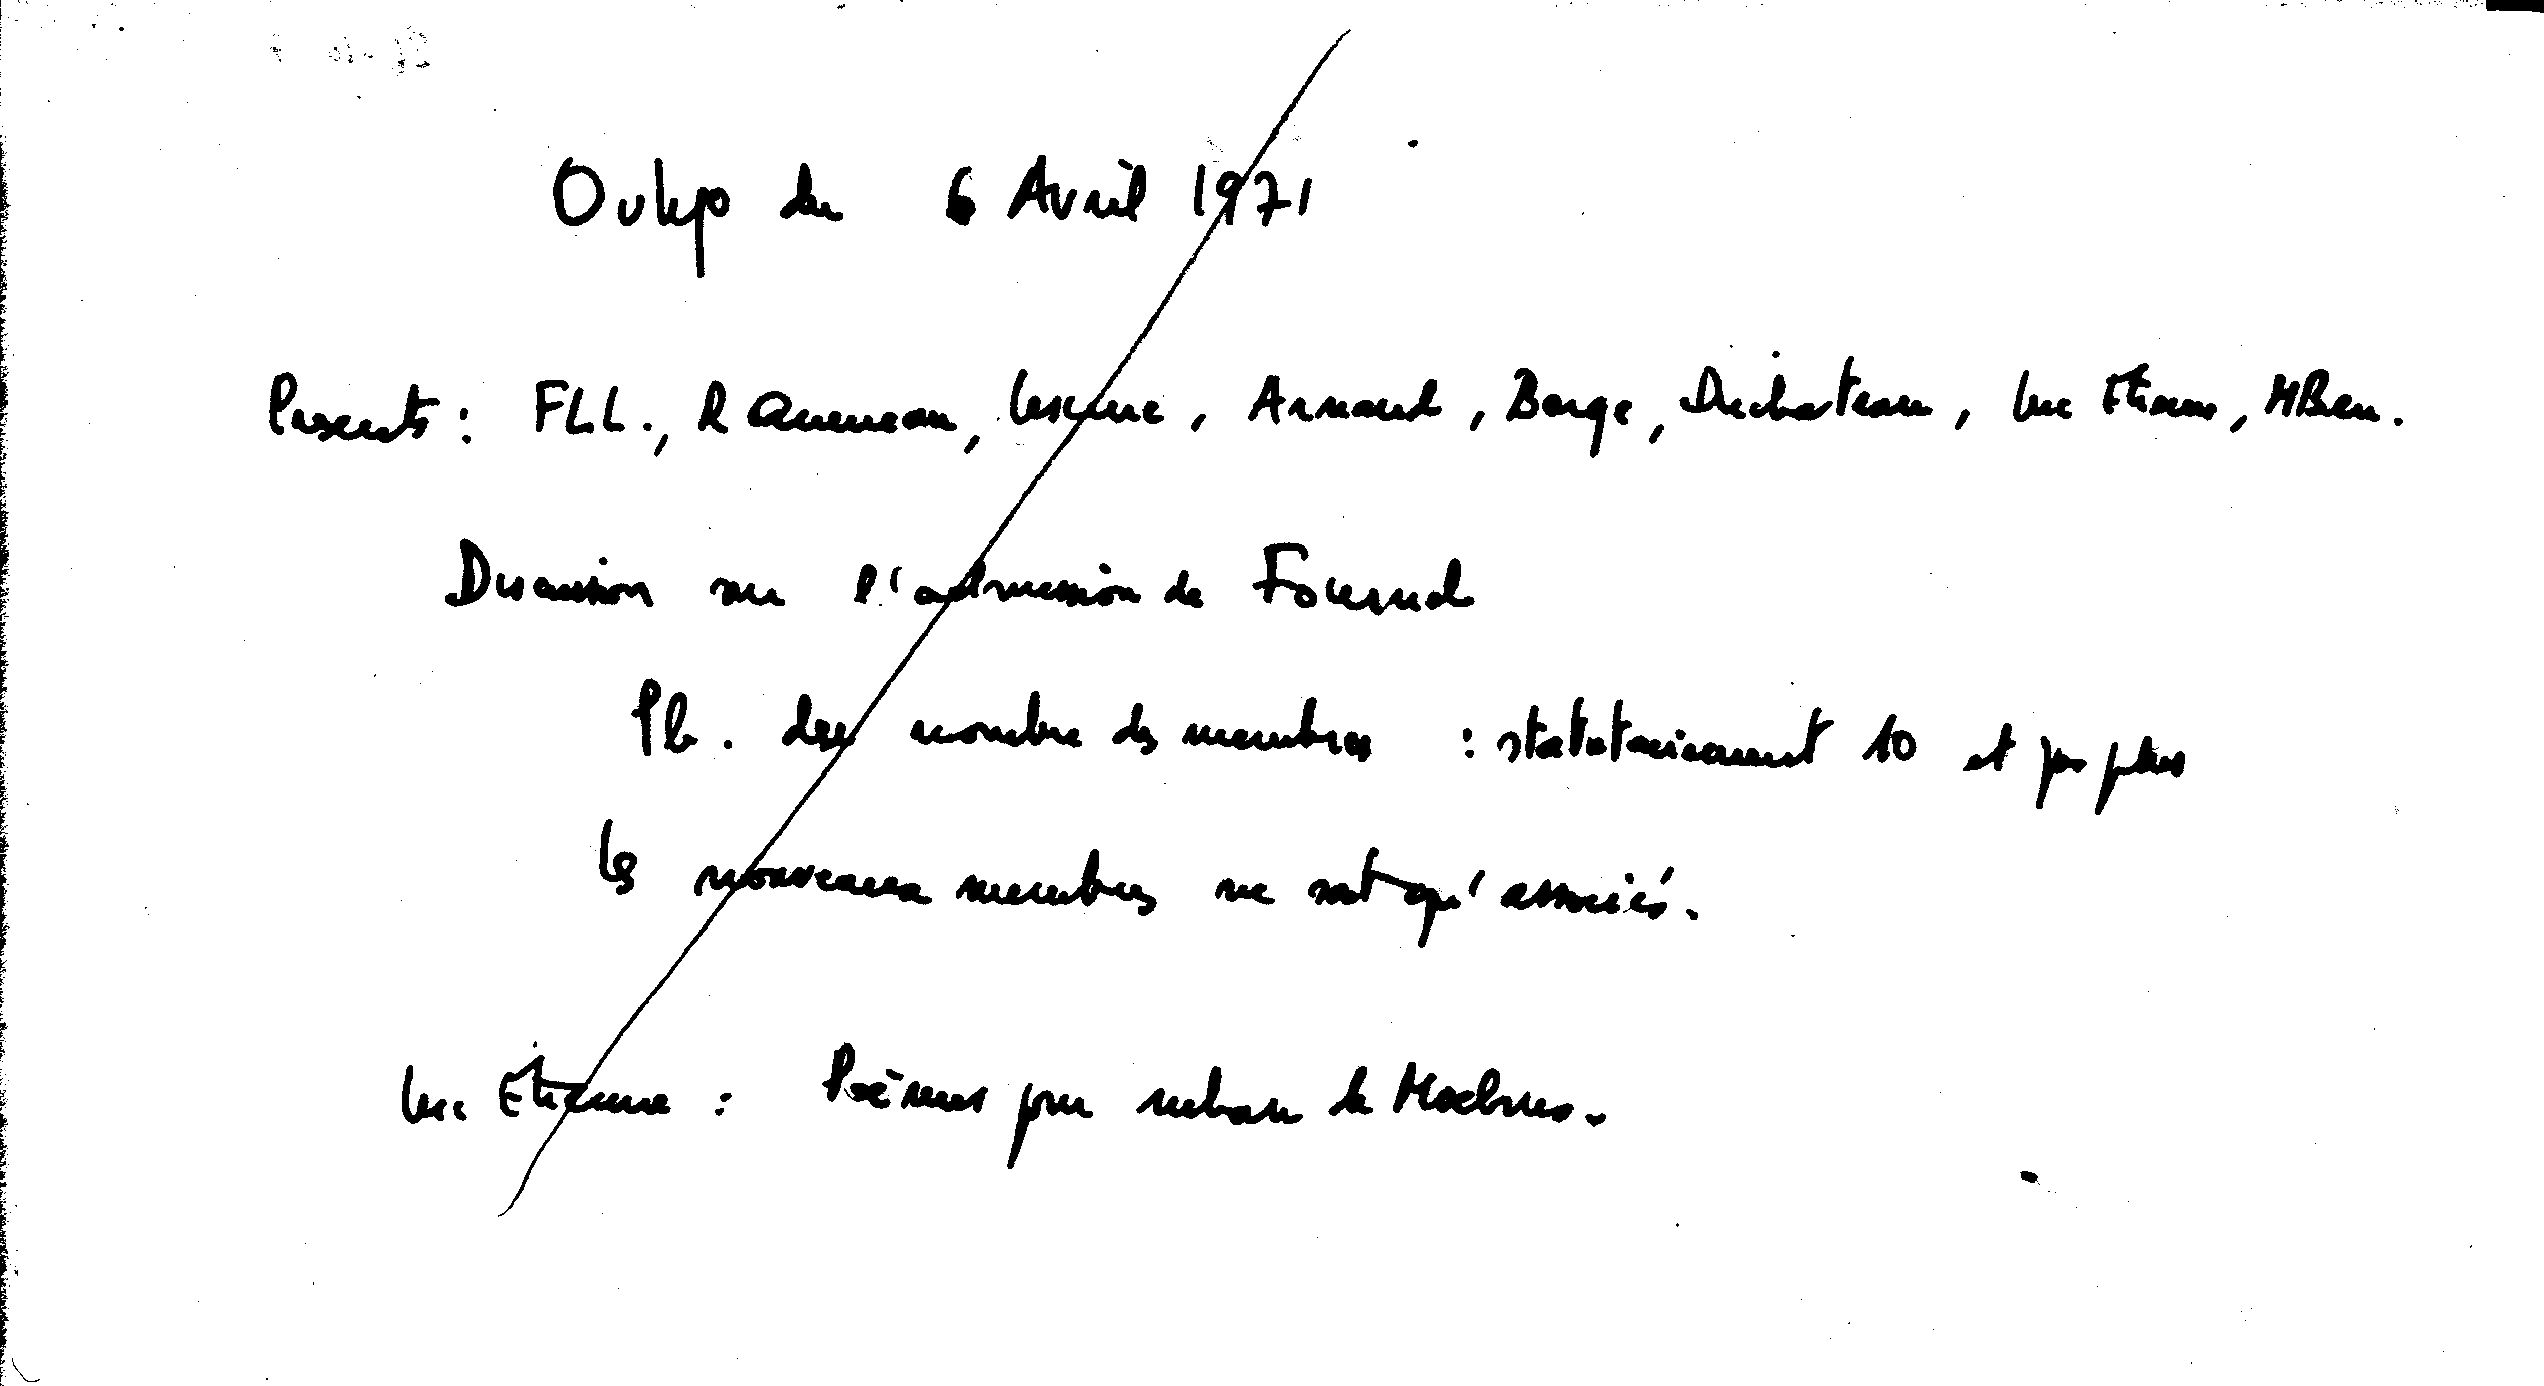 Oulipo du 6 Avril 1971
Presents : FLL., R Queneau, Lescure, Arnaud, Berge, Duchateau, Luc Etienne, MBen.
Discussion sur l'admission de Fournel
Pb. du nombre des membres : statutairement 10 et pas plus
Les nouveaux membres ne sont qu'associés.
Luc Etienne : Poèmes pour ruban de Moebius.